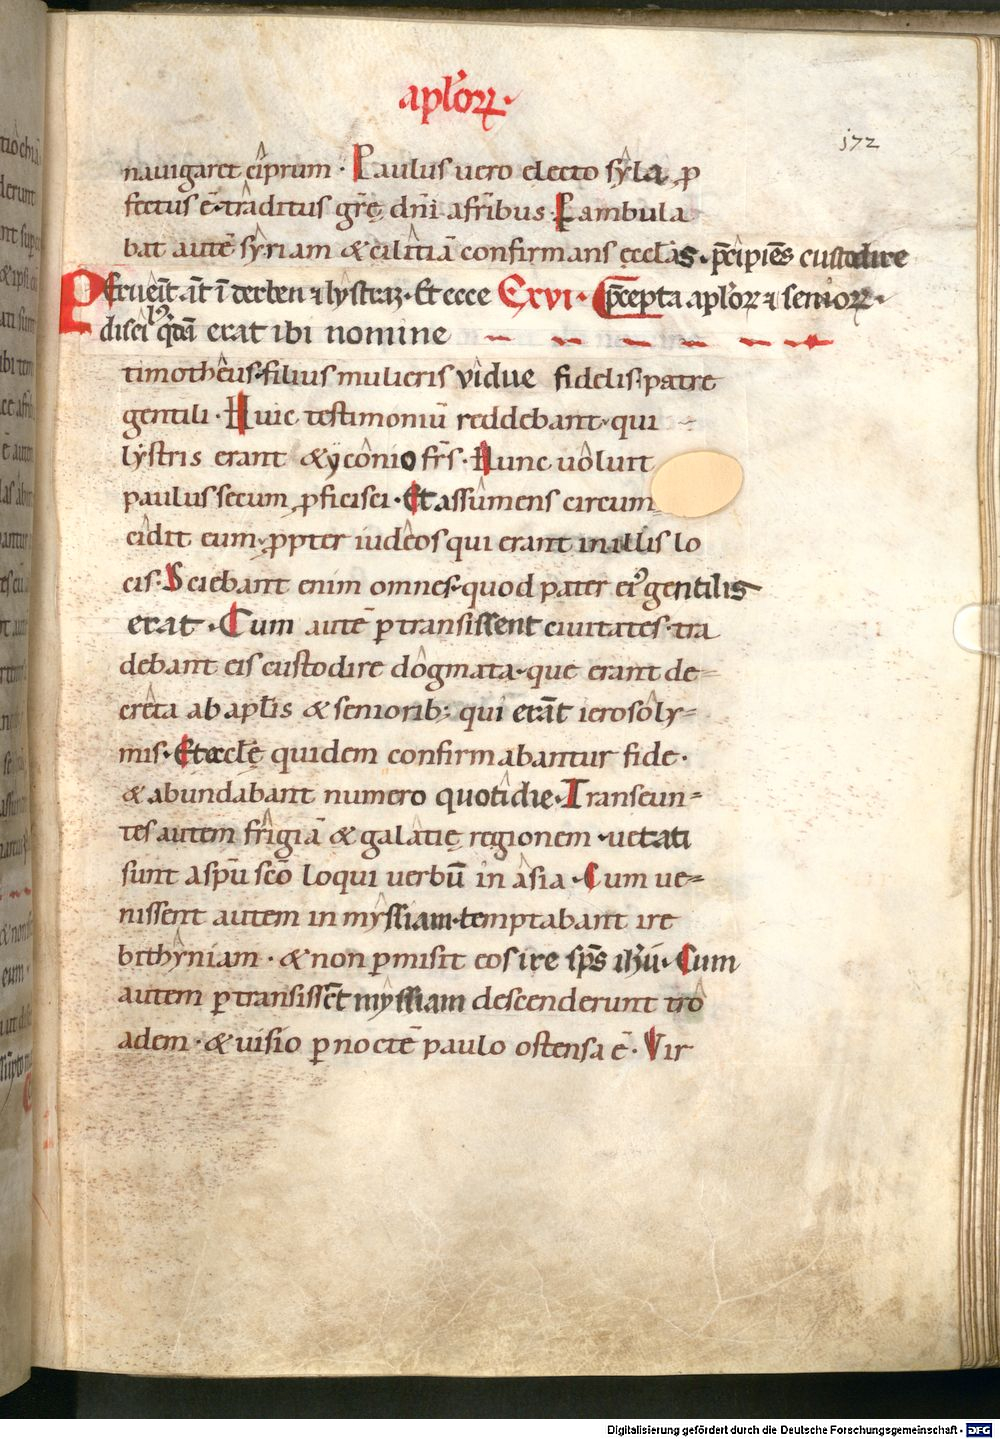 apl'oꝝ·
172
nauigaret ciprum · Paulus uero electo syla ꝓ
fectus ē· traditus gr̄ę dn̄i a fr̄ibus· Perambula
bat autē syriam & cilitiā confirmans ęccl'as · p̄cipiēs custodire
Peruēit āt ī derben ⁊ lystraꝫ · Et ecce C xvi · p̄cepta apl'oꝝ ⁊ senioꝝ·
discil'us qⁱdā erat ibi nomine
timotheus· filius mulieris vidue fidelis· patre
gentili · Huic testimoniū reddebant· qui
lystris erant & yconio fr̄s · Hunc uoluit
paulus secum ꝓficisci · Et assumens circum
cidit eum· ꝓpter iudeos qui erant in illis lo
cis· Sciebant enim omnes· quod pater eiꝰ gentilis
erat · Cum autē ꝑtransissent ciuitates· tra
debant eis custodire dogmata· que erant de=
creta ab apl'is & seniorib; qui erāt ierosoly=
mis· Et ęcclę quidem confirmabantur fide·
& abundabant numero quotidie· Transeun=
tes autem frigiā & galatię regionem · uetati
sunt a spū scō loqui uerbū in asia · Cum ue=
nissent autem in myssiam· temptabant ire
bithyniam · & non ꝑmisit eos ire sp̄s ih̄u· Cum
autem ꝑtransissēt myssiam descenderunt tro
adem · & uisio ꝑ noctē paulo ostensa ē · Vir
Digitalisierung gefördert durch die Deutsche Forschungsgemeinschaft - DFG